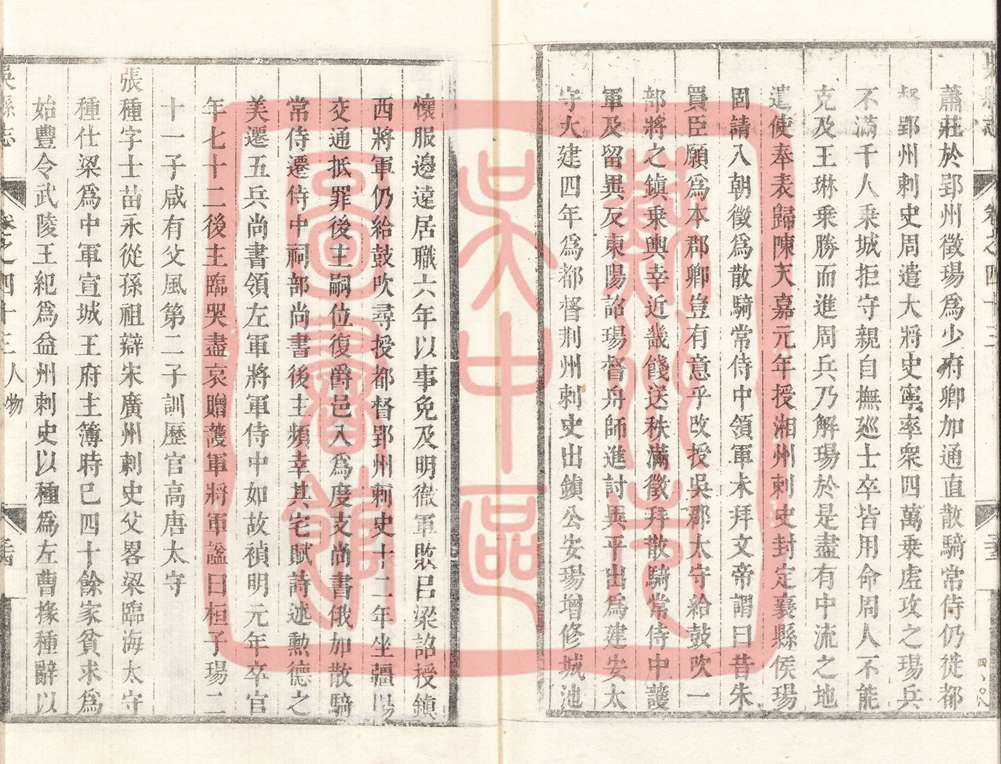 蕭莊於郢州徵瑒爲少府卿加通直散騎常侍仍徙都
督郢州刺史周遣大將史寧率衆四萬乗虚攻之瑒兵
不滿千人乗城拒守親自撫廵士卒皆用命周人不能
克及王琳乗勝而進周兵乃解瑒於是盡有中流之地
遣使奉表歸陳天嘉元年授湘州刺史封定襄縣侯瑒
固請入朝徵爲散騎常侍中領軍未拜文帝謂曰昔朱
買臣願爲本郡卿豈有意乎改授吳郡太守給鼓吹一
部將之鎮乗輿幸近畿餞送秩滿徵拜散騎常侍中護
軍及留異反東陽詔瑒督舟師進討異平出爲建安太
守大建四年爲都督荆州刺史出鎮公安瑒增修城池
懷服邊遠居職六年以事免及明徹軍敗呂梁詔授鎮
西將軍仍給鼓吹尋授都督郢州刺史十二年坐疆場
交通抵罪後主嗣位復爵邑入爲度支尚書俄加散騎
常侍遷侍中祠部尚書後主頻幸其宅賦詩述勲德之
美遷五兵尚書領左軍將軍侍中如故禎明元年卒官
年七十二後主臨哭盡哀贈護軍將軍謚曰桓子瑒二
十一子咸有父風第二子訓歷官高唐太守
張種字士苗永從孫祖辯宋廣州刺史父畧梁臨海太守
種仕梁爲中軍宣城王府主簿時已四十餘家貧求爲
始豐令武陵王紀爲益州刺史以種爲左曹掾種辭以
吳縣志
卷之四十三
人物
蘇州市
吴中區
圖書館